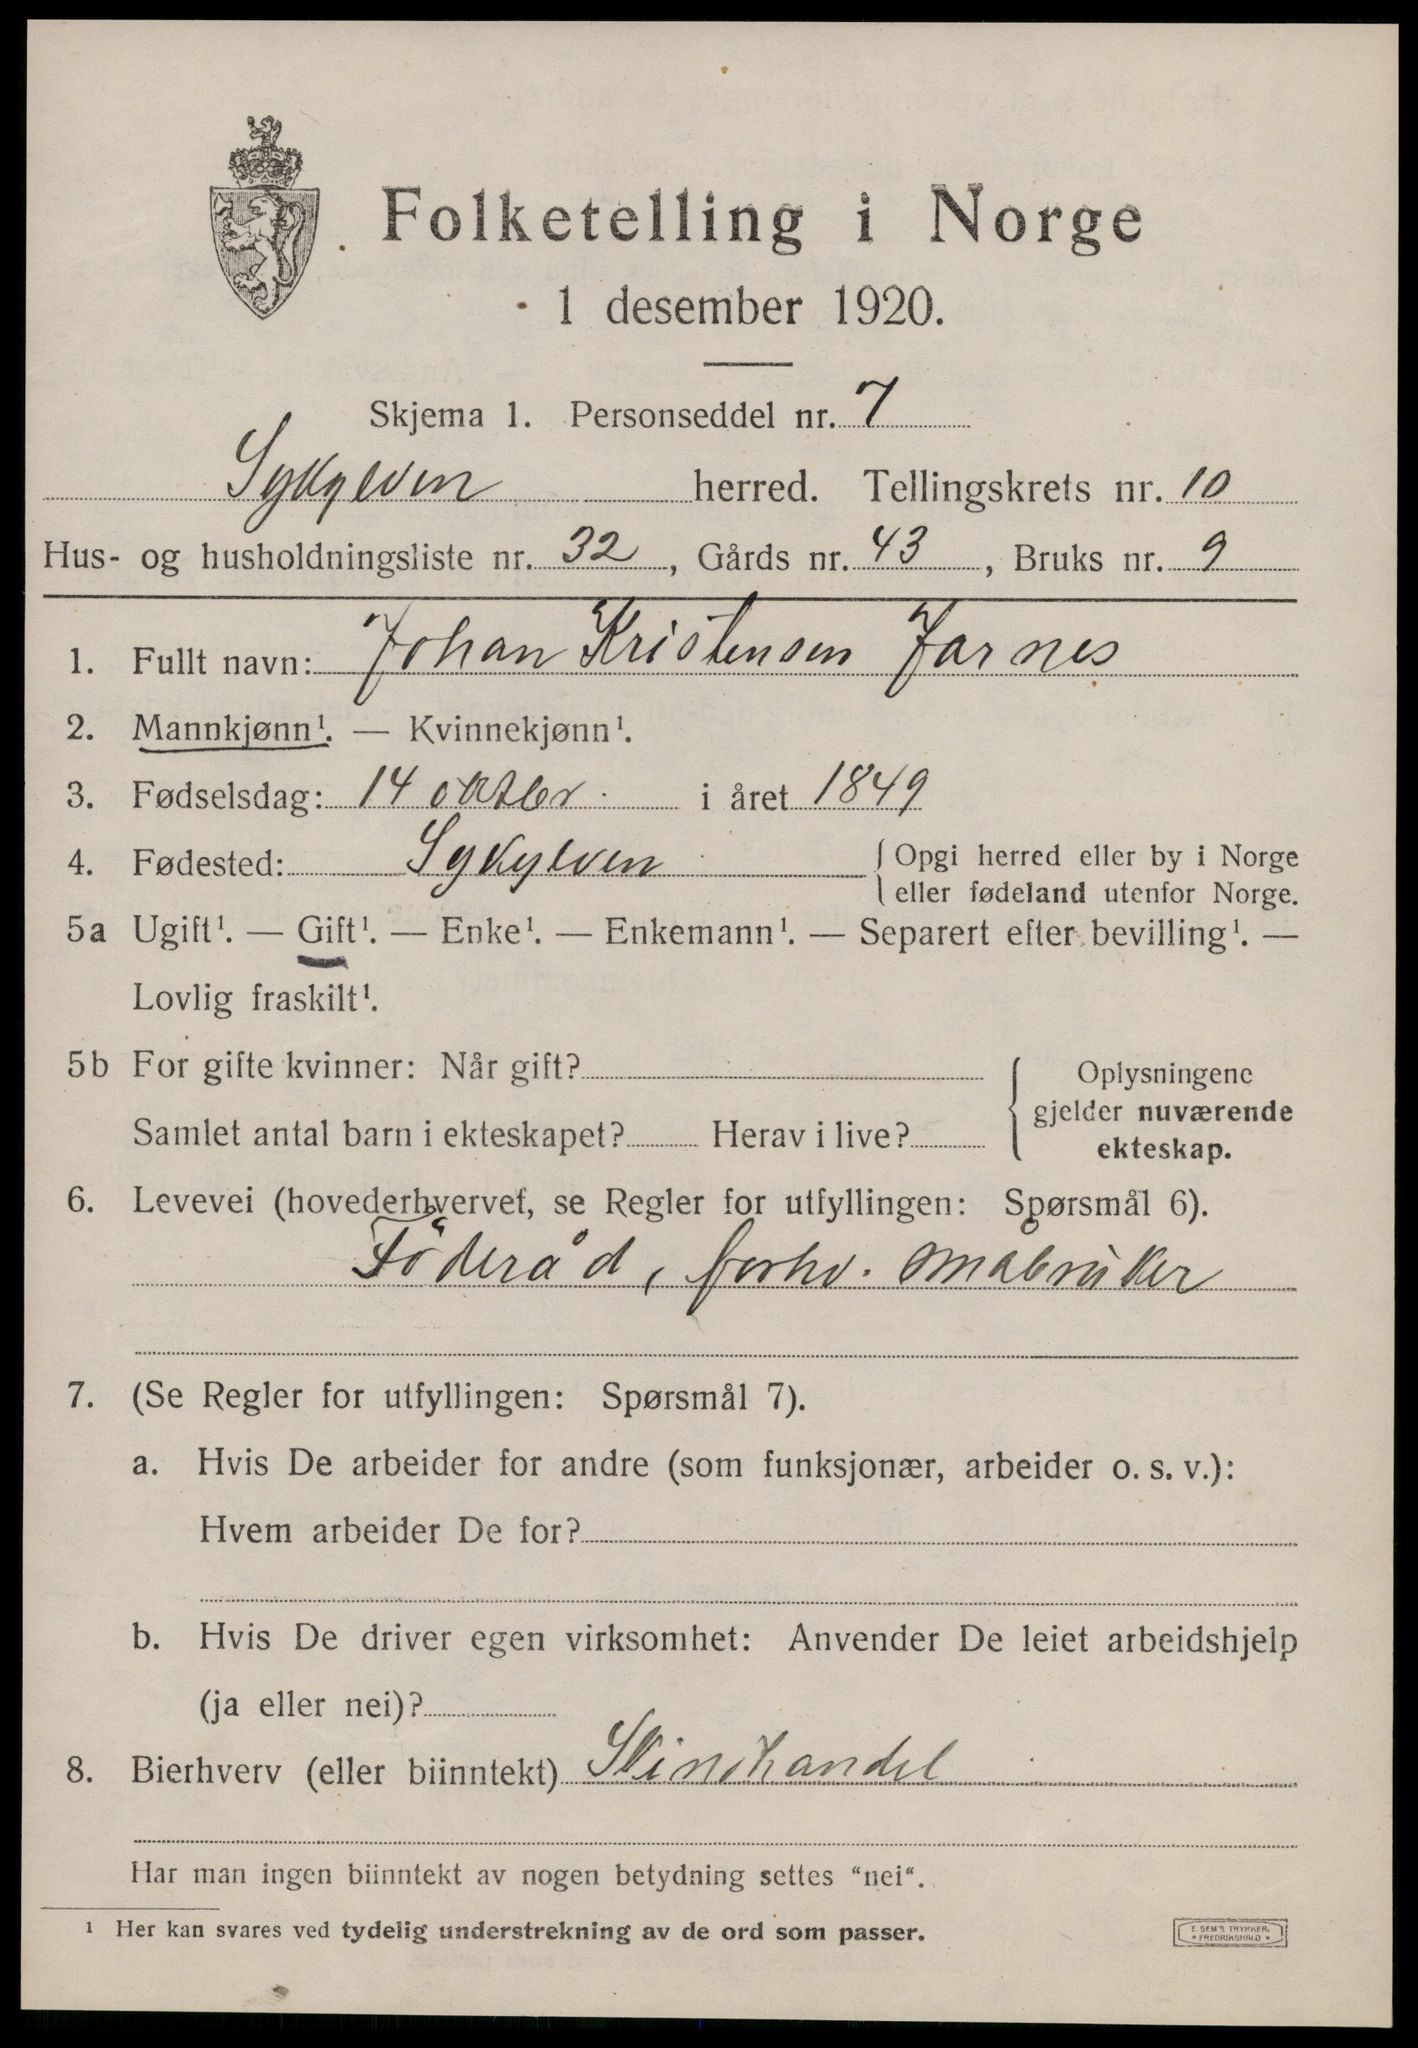 Folketelling i Norge
1 desember 1920.
Skjema 1. Personseddel nr. 7
Sykylven herred. Tellingskrets nr. 10
Hus- og husholdningsliste nr. 32, Gårds nr. 43, Bruks nr. 9
1. Fullt navn: Johan Kristensen Jarnes
2. Mannkjønn¹. — Kvinnekjønn¹.
3. Fødselsdag: 14 oktbr. i året 1849
4. Fødested: Sykylven { Opgi herred eller by i Norge
eller fødeland utenfor Norge.
5a Ugift¹. — Gift¹. — Enke¹. — Enkemann¹. — Separert efter bevilling¹. —
Lovlig fraskilt¹.
5b For gifte kvinner: Når gift?
Samlet antal barn i ekteskapet? Herav i live?
Oplysningene
gjelder nuværende
ekteskap.
6. Levevei (hovederhvervet, se Regler for utfyllingen: Spørsmål 6).
Föderåd, forhv. småbruker
7. (Se Regler for utfyllingen: Spørsmål 7).
a. Hvis De arbeider for andre (som funksjonær, arbeider o. s. v.):
Hvem arbeider De for?
b. Hvis De driver egen virksomhet: Anvender De leiet arbeidshjelp
(ja eller nei)?
8. Bierhverv (eller biinntekt) Skindhandel
Har man ingen biinntekt av nogen betydning settes "nei".
¹ Her kan svares ved tydelig understrekning av de ord som passer.
E. SEM'S TRYKKER.
FREDRIKSHALD